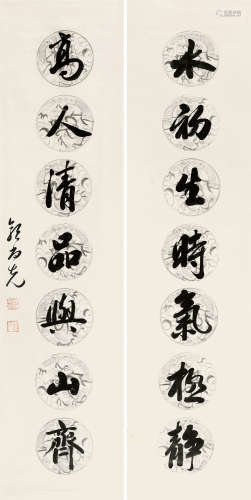 水初生時氣極靜
高人情品與山齊
郭尚先